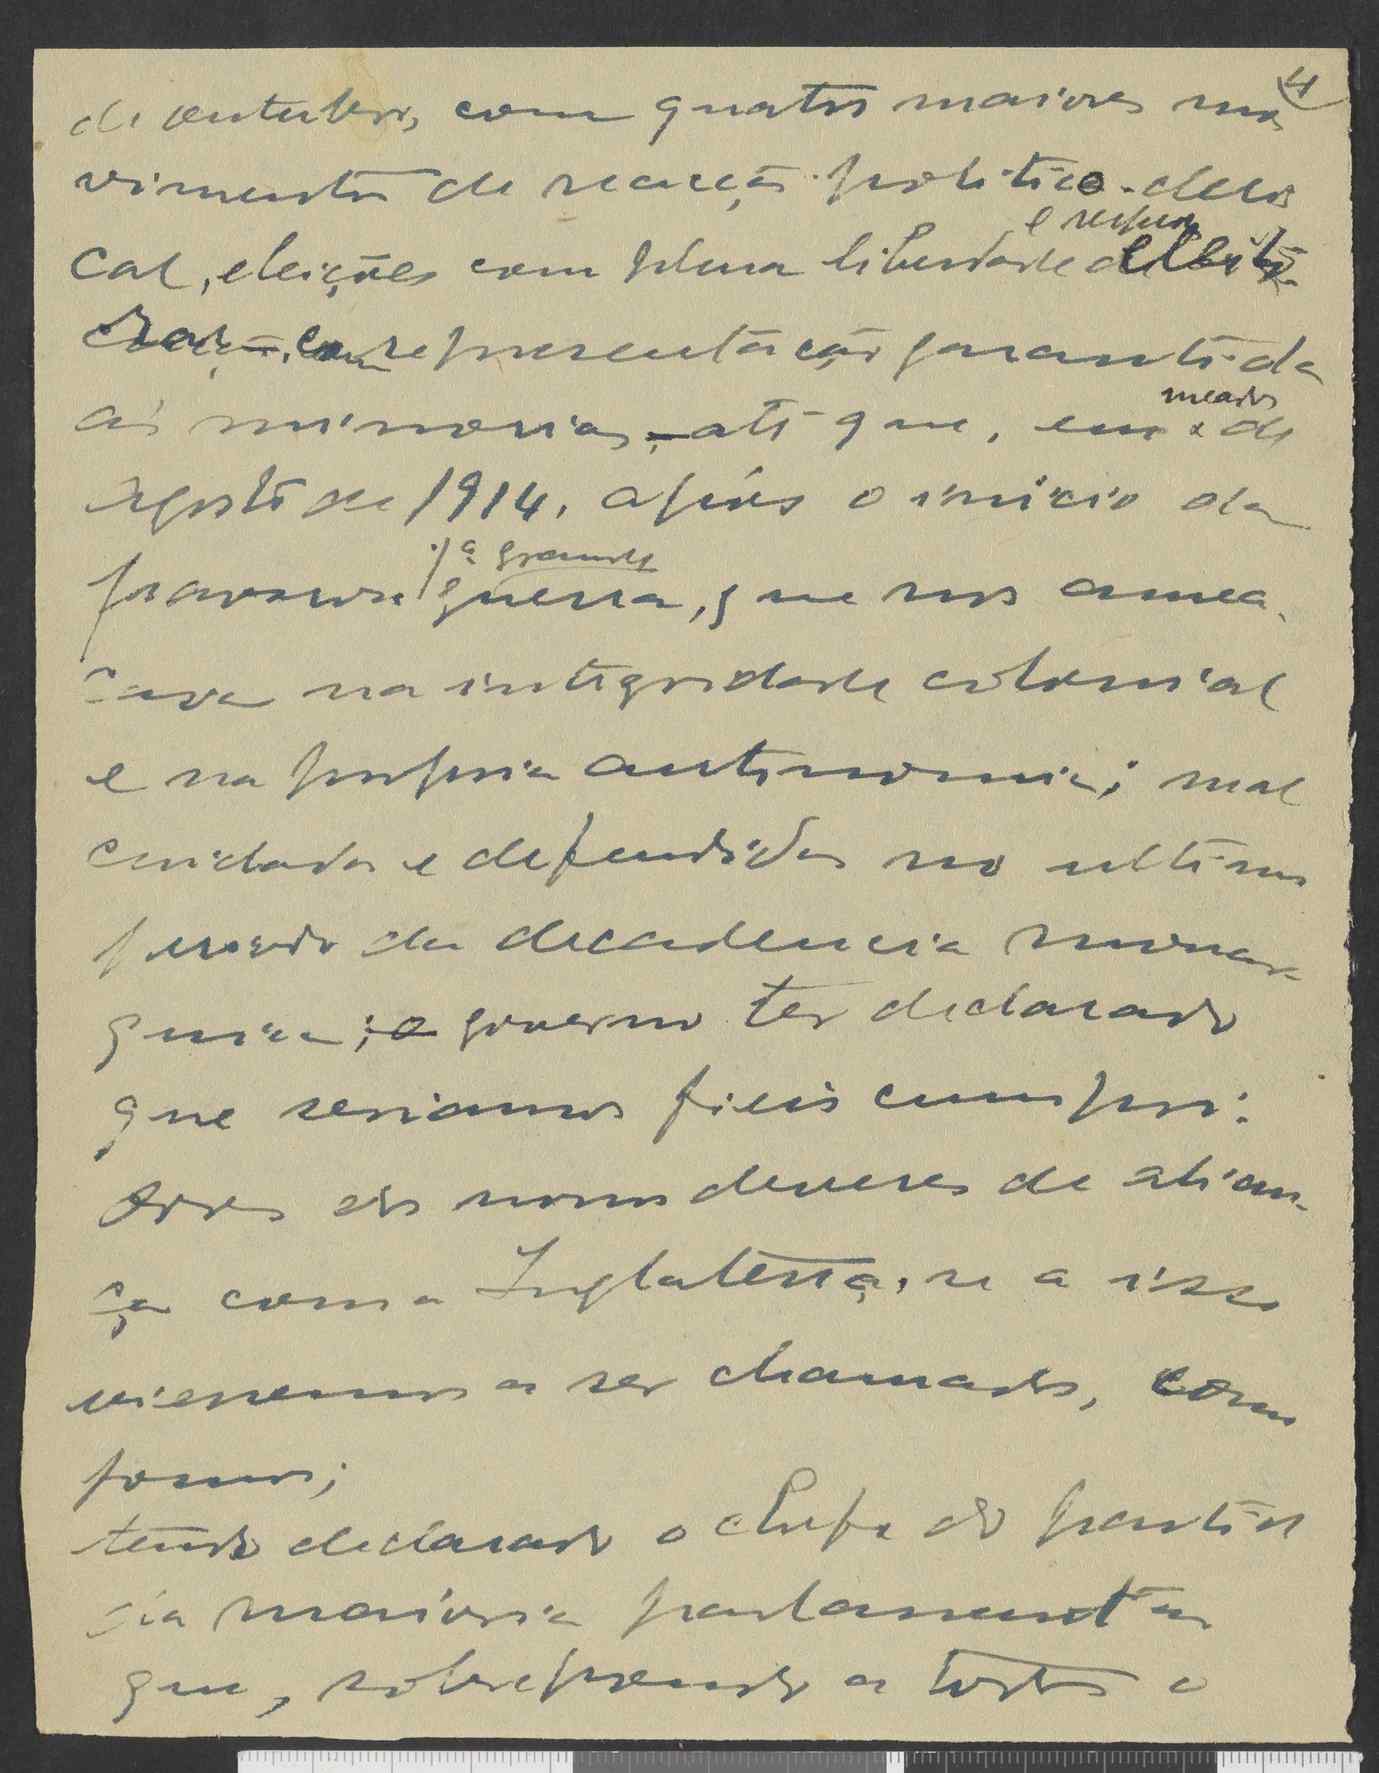 4
de outubro, com quatro maiores mo
vimentos de reacção politico-cleri
cal, eleições com plena liberdade
e
representação garantida
ás minorias, até que, em meados de
agosto de 1914, após o inicio da
pavorosa 1ª grande guerra, que nos amea
çava na integridade colonial
e na propria autonomia; mal
cuidadas e defendidas no ultimo
periodo da decadencia monar
quica; o governo ter declarado
que seriamos fieis cumpri-
dores dos nossos deveres de alian-
ça com a Inglaterra, se a isso
viessemos a ser chamados, como
fomos;
tendo declarado o chefe do partido
da maioria parlamentar
que, sobrepondo a todos o